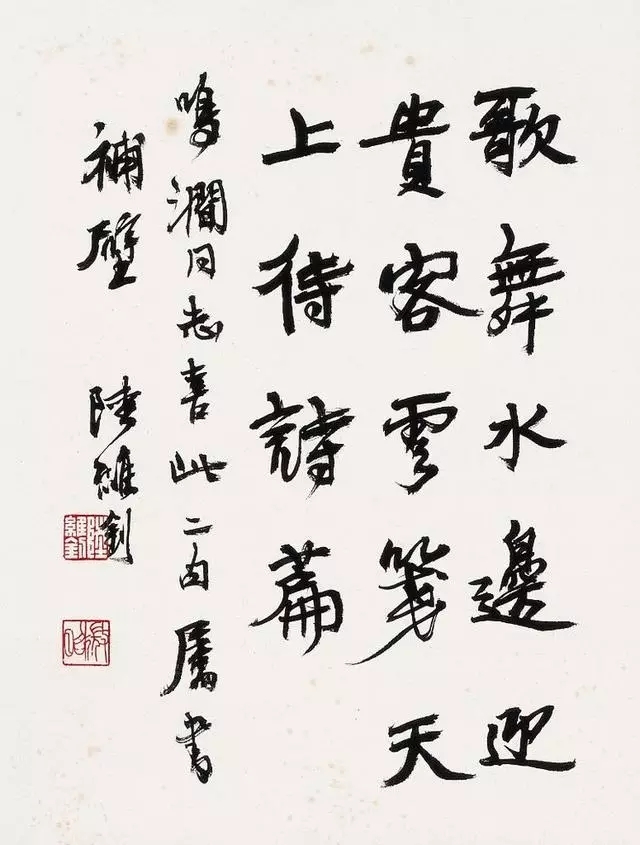 歌舞水邊迎
貴客雲箋天
上待詩篇
鳴瀾同志喜此二句屬書
補壁 陸維釗
陸維釗